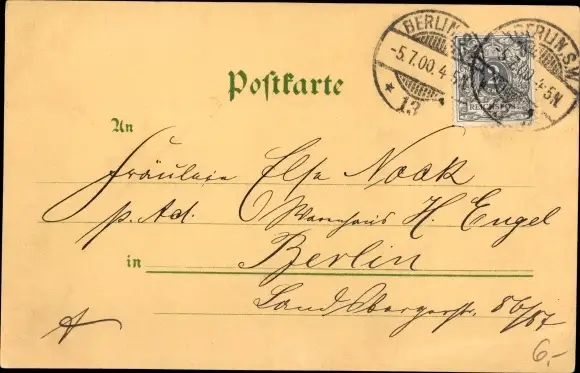 BERLIN.S.W.
-5.7.00.4-5N.
* 13
BERLIN.S.W.
-5.7.00.4-5N.
Postkarte
An
Fräulein Else Noak
p. Ad. Warenhaus H. Engel
in Berlin
Landsbergerstr. 86/87
6.-